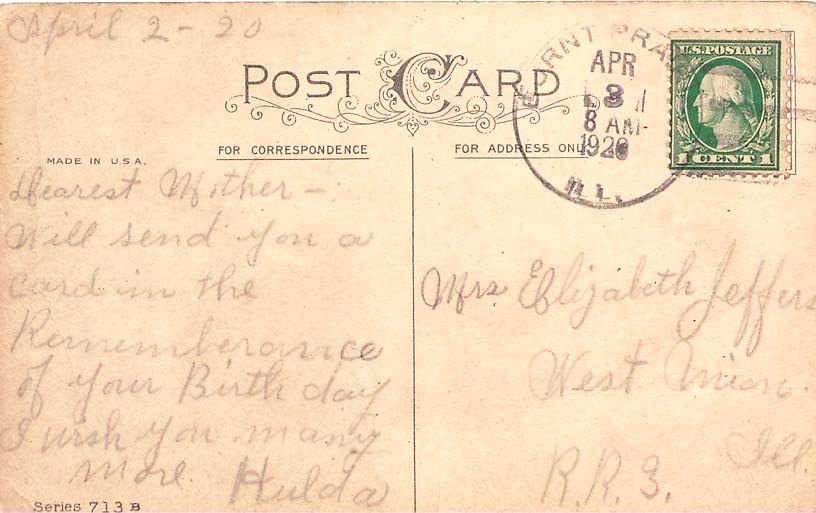 April 2 - 20
POST CARD
FOR CORRESPONDENCE
FOR ADDRESS ONLY
MADE IN U.S.A.
BURNT PRAI
APR
3
8 AM
1920
ILL.
U.S. POSTAGE
1 CENT 1
Dearest Mother -
Will send you a
card in the
Rememberance
of your Birth day
I wish you many
more. Hulda
Series 713 B
Mrs Elizabeth Jeffers
West Union.
Ill.
R.R. 3.